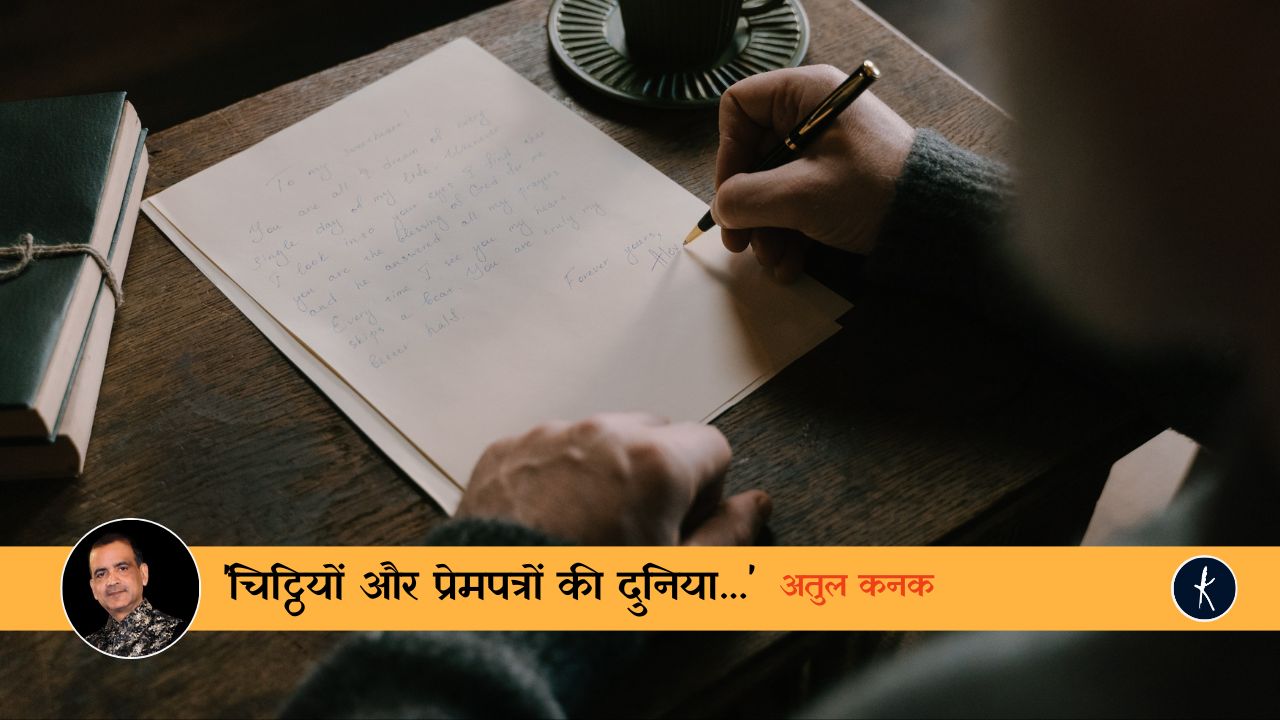 To my sweetheart!
You are all I dream of every
single day of my life. Whenever
I look into your eyes I find that
you are the blessing of God for me
and he answered all my prayers
Every time I see you my heart
skips a beat. You are truly my
better half.
Forever yours,
Alex
'चिट्ठियों और प्रेमपत्रों की दुनिया...' अतुल कनक